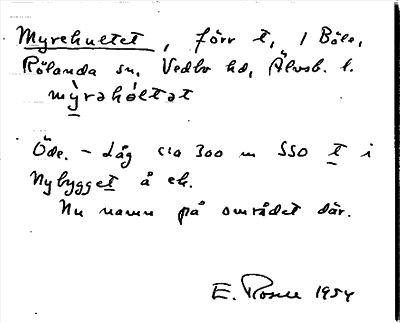 Myrehultet, förr t, 1 Böle,
Rölanda sn, Vedbo hd, Älvsb. l.
mỳrəhól̀tət
Öde. – Låg c:a 300 m SSO t i
Nybygget å ek.
Nu namn på området där.
E. Rosell 1954